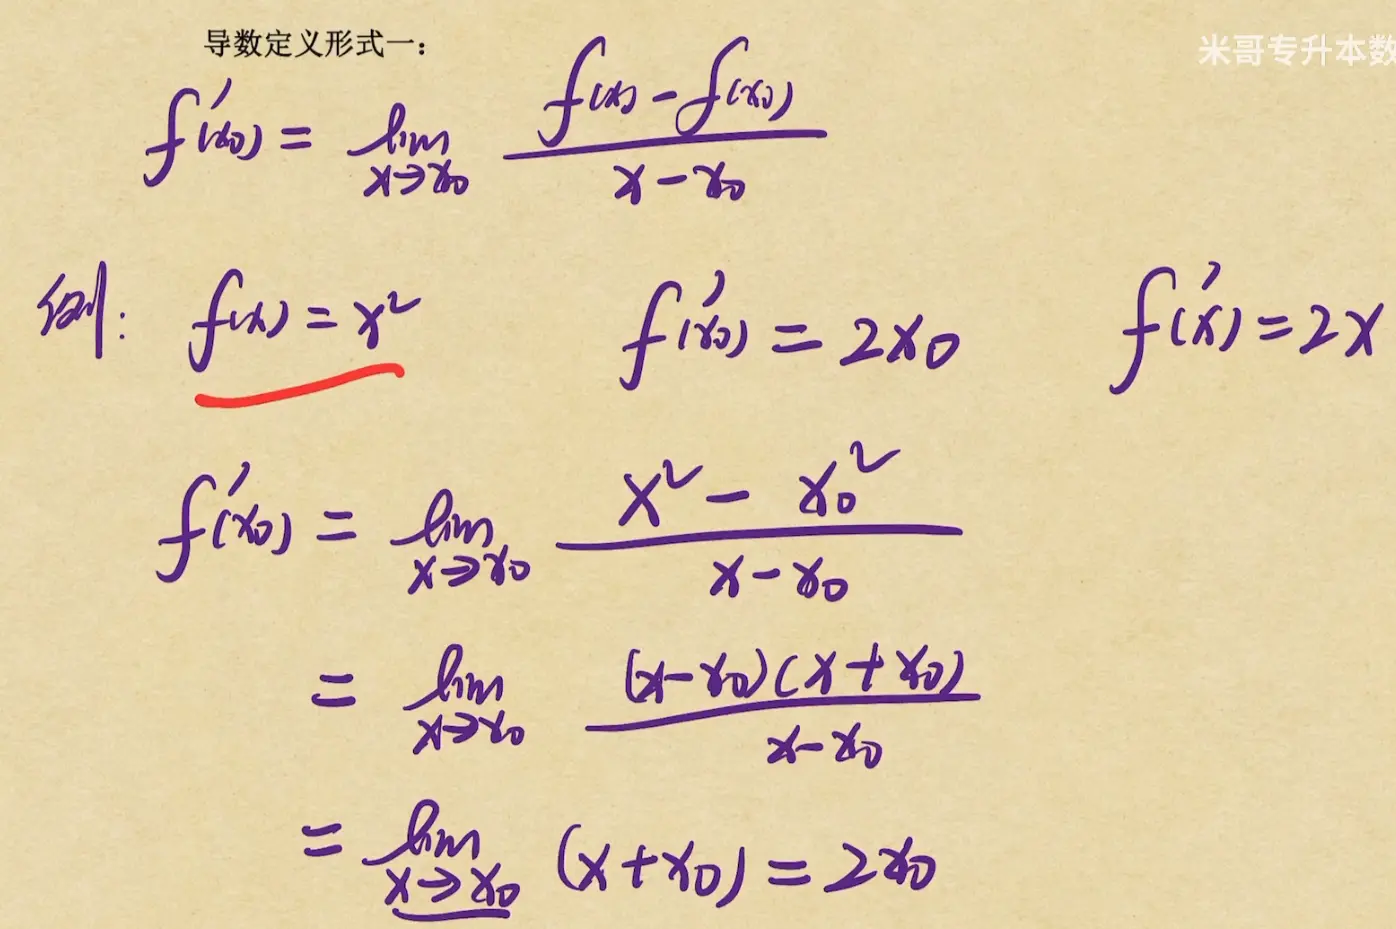 导数定义形式一：
米哥专升本数
f'(x₀) = lim x→x₀ (f(x) - f(x₀)) / (x - x₀)
例: f(x) = x² f'(x₀) = 2x₀ f'(x) = 2x
f'(x₀) = lim x→x₀ (x² - x₀²) / (x - x₀)
= lim x→x₀ (x-x₀)(x+x₀) / (x-x₀)
= lim x→x₀ (x+x₀) = 2x₀